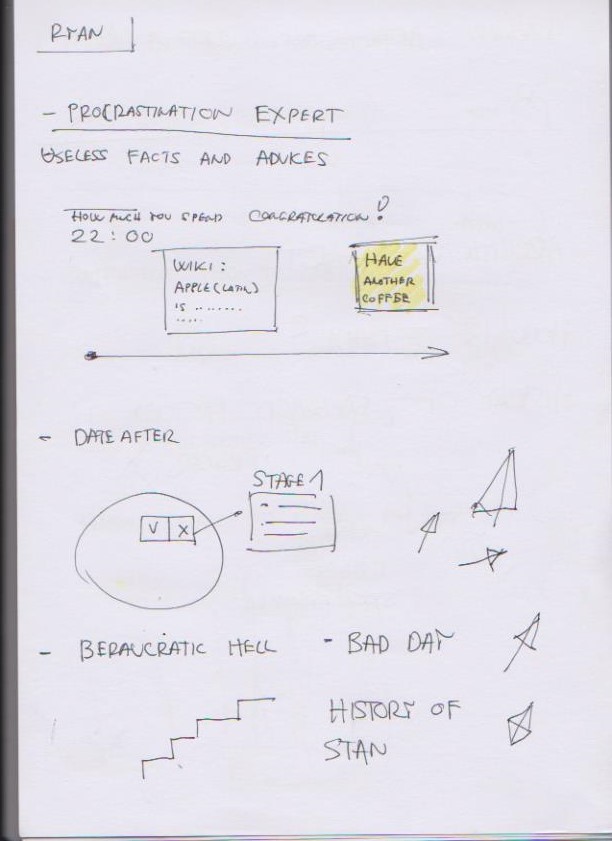 RYAN
- PROCRASTINATION EXPERT
USELESS FACTS AND ADVICES
HOW MUCH YOU SPEND CONGRATULATION!
22:00
WIKI:
APPLE (LATIN)
IS ........
.....
HAVE
ANOTHER
COFFEE
- DATE AFTER
STAGE 1
V X
- BERAUCRATIC HELL
- BAD DAY
HISTORY OF
STAN